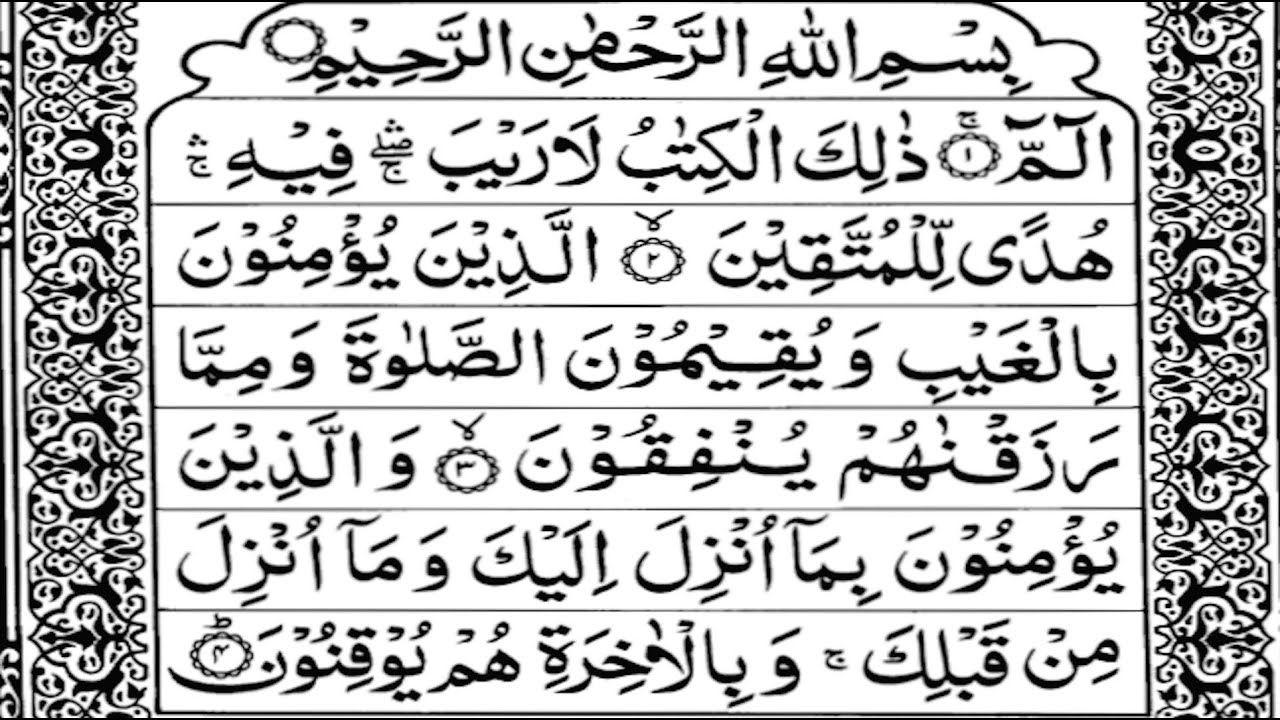 بِسْمِ اللهِ الرَّحْمٰنِ الرَّحِيْمِ ۝
الٓمّٓ ۚ‏﴿۱﴾ ذٰلِكَ الْكِتٰبُ لَا رَيْبَ ۛۖۚ فِيْهِ ۛۚ
هُدًى لِّلْمُتَّقِيْنَ ۙ‏﴿۲﴾ الَّذِيْنَ يُؤْمِنُوْنَ
بِالْغَيْبِ وَ يُقِيْمُوْنَ الصَّلٰوةَ وَ مِمَّا
رَزَقْنٰهُمْ يُنْفِقُوْنَ ۙ‏﴿۳﴾ وَ الَّذِيْنَ
يُؤْمِنُوْنَ بِمَآ اُنْزِلَ اِلَيْكَ وَ مَآ اُنْزِلَ
مِنْ قَبْلِكَ ۚ وَ بِالْاٰخِرَةِ هُمْ يُوْقِنُوْنَ ؕ‏﴿۴﴾